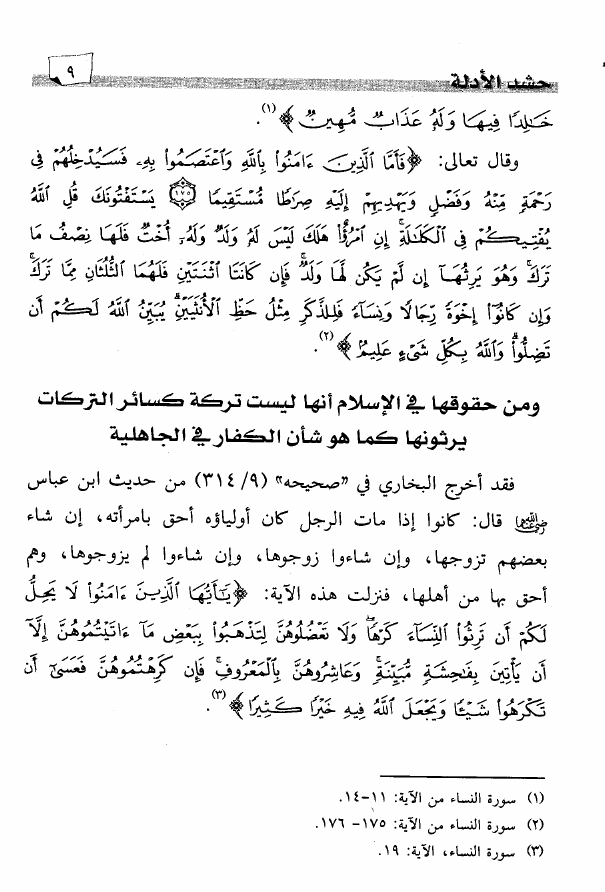 حشد الأدلة
٩
خَٰلِدًا فِيهَا وَلَهُۥ عَذَابٌ مُّهِينٌ ﴾(١).
وقال تعالى: ﴿فَأَمَّا ٱلَّذِينَ ءَامَنُوا۟ بِٱللَّهِ وَٱعْتَصَمُوا۟ بِهِۦ فَسَيُدْخِلُهُمْ فِى
رَحْمَةٍ مِّنْهُ وَفَضْلٍ وَيَهْدِيهِمْ إِلَيْهِ صِرَٰطًا مُّسْتَقِيمًا ۝١٧٥ يَسْتَفْتُونَكَ قُلِ ٱللَّهُ
يُفْتِيكُمْ فِى ٱلْكَلَٰلَةِ ۚ إِنِ ٱمْرُؤٌا۟ هَلَكَ لَيْسَ لَهُۥ وَلَدٌ وَلَهُۥٓ أُخْتٌ فَلَهَا نِصْفُ مَا
تَرَكَ ۚ وَهُوَ يَرِثُهَآ إِن لَّمْ يَكُن لَّهَا وَلَدٌ ۚ فَإِن كَانَتَا ٱثْنَتَيْنِ فَلَهُمَا ٱلثُّلُثَانِ مِمَّا تَرَكَ ۚ
وَإِن كَانُوٓا۟ إِخْوَةً رِّجَالًا وَنِسَآءً فَلِلذَّكَرِ مِثْلُ حَظِّ ٱلْأُنثَيَيْنِ ۗ يُبَيِّنُ ٱللَّهُ لَكُمْ أَن
تَضِلُّوا۟ ۗ وَٱللَّهُ بِكُلِّ شَىْءٍ عَلِيمٌۢ ﴾(٢).
ومن حقوقها في الإسلام أنها ليست تركة كسائر التركات
يرثونها كما هو شأن الكفار في الجاهلية
فقد أخرج البخاري في «صحيحه» (٣١٤/٩) من حديث ابن عباس
رضي الله عنهما قال: كانوا إذا مات الرجل كان أولياؤه أحق بامرأته، إن شاء
بعضهم تزوجها، وإن شاءوا زوجوها، وإن شاءوا لم يزوجوها، وهم
أحق بها من أهلها، فنزلت هذه الآية: ﴿يَٰٓأَيُّهَا ٱلَّذِينَ ءَامَنُوا۟ لَا يَحِلُّ
لَكُمْ أَن تَرِثُوا۟ ٱلنِّسَآءَ كَرْهًا ۖ وَلَا تَعْضُلُوهُنَّ لِتَذْهَبُوا۟ بِبَعْضِ مَآ ءَاتَيْتُمُوهُنَّ إِلَّآ
أَن يَأْتِينَ بِفَٰحِشَةٍ مُّبَيِّنَةٍ ۚ وَعَاشِرُوهُنَّ بِٱلْمَعْرُوفِ ۚ فَإِن كَرِهْتُمُوهُنَّ فَعَسَىٰٓ أَن
تَكْرَهُوا۟ شَيْـًٔا وَيَجْعَلَ ٱللَّهُ فِيهِ خَيْرًا كَثِيرًا ﴾(٣).
(١) سورة النساء من الآية: ١١-١٤.
(٢) سورة النساء من الآية: ١٧٥- ١٧٦.
(٣) سورة النساء، الآية: ١٩.